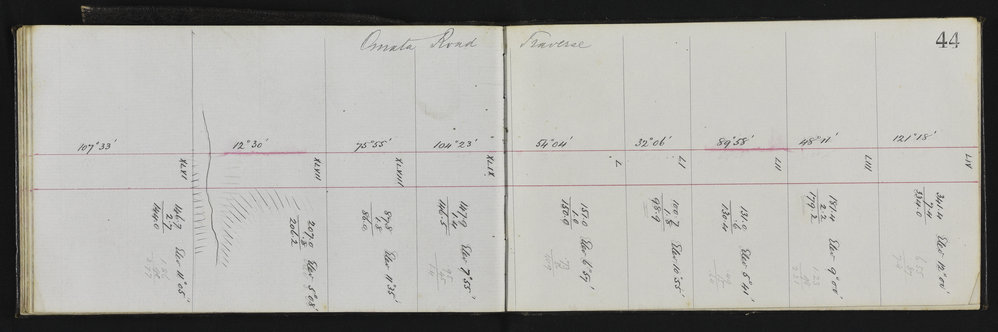 Omata Road Traverse
44
107°33'
12°30'
75°55'
104°23'
54°04'
32°06'
89°58'
48°11'
121°18'
XLVI
XLVII
XLVIII
XLIX
L
LI
LII
LIII
LIV
146.7 Elev 11°05'
2.7
144.0
207.0 Elev 5°03'
.8
206.2
87.8 Elev 11°35'
1.8
86.0
147.9 Elev 7°55'
1.4
146.5
151.0 Elev 6°59'
1.0
150.0
100.7 Elev 10°55'
1.8
98.9
131.0 Elev 5°41'
.6
130.4
181.4 Elev 9°00'
2.2
179.2
341.4 Elev 12°00'
7.4
334.0